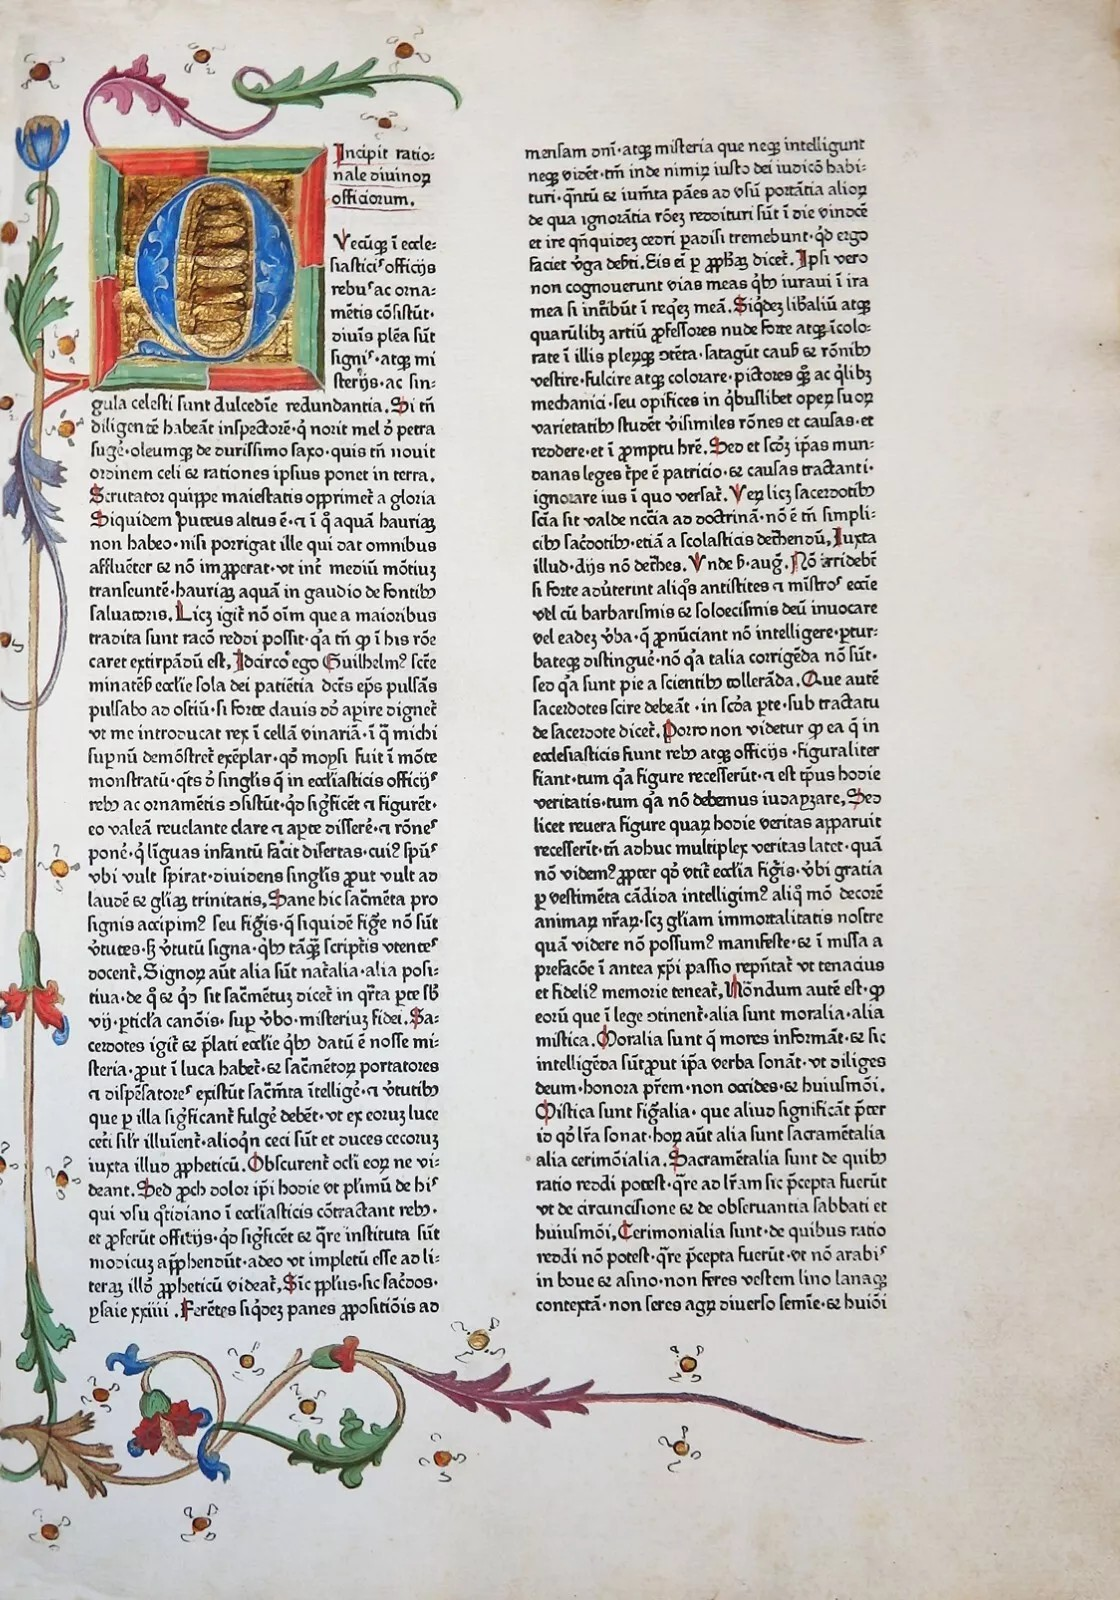 Incipit ratio-
nale diuinoꝝ
officiorum.
Q
Vecūqꝫ ī eccle-
siasticis officijs
rebus ac orna-
mētis cōsistūt·
diuīs plēa sūt
signis·atqꝫ mi
sterijs·ac sin-
gula celesti sunt dulcedīe redundantia. Si tñ
diligentē habeāt inspectorē·q̇ norit mel d̓ petra
sugē·oleumqꝫ de durissimo saxo·quis tñ nouit
ordinem celi ⁊ rationes ipsius ponet in terra.
Scrutator quippe maiestatis opprimet̄ a gloria
Siquidem puteus altus ē·⁊ ī q̊ aquā hauriaꝫ
non habeo·nisi porrigat ille qui dat omnibus
afflueñter ⁊ nō imꝓperat·vt int̄ mediū mōtiuꝫ
transeuntē·hauriaꝫ aquā in gaudio de fontibꝰ
saluatoris. Licꝫ igit̄ nō oīm que a maioribus
tradita sunt racō reddi possit·q̇a tñ ꝙ ī his rōe
caret extirpādū est, Idcirco ego Guilhelmꝰ scē
minatēs̄ ecclīe sola dei patiētia dc̄ts ep̄s pulsās
pulsabo ad ostiū·si forte clauis dd̓ apire dignet̄
vt me introducat rex ī cellā vinariā·ī q̄ michi
supnū demōstret̄ exēplar·qd̓ moysi fuit ī mōte
monstratū·q̄ts d̓ singlis q̄ in eccl̄iasticis officijs
rebꝰ ac ornamētis ↄsistūt·qd̓ sig̓ficēt ⁊ figurēt·
eo valeā reuelante clare ⁊ apte disserē·⁊ rōnes
ponē·q̇ līguas infantū facit disertas·cuiꝰ spūs
vbi vult spirat·diuidens singlis ꝓut vult ad
laudē ⁊ gl̄iaꝫ trinitatis, Sane hic sacm̄eta pro
signis accipimꝰ seu fig̓is·q̄ siquidē fig̓e nō sūt
v̓tutes·sꝫ v̓tutū signa·q̇bꝰ tāq̄ꝫ scriptis vtentes
docent̄. Signoꝝ aūt alia sūt nat̄alia·alia posi-
tiua·de q̊ ⁊ qd̓ sit sacm̄etuꝫ dicet̄ in qr̄ta pte sb̄
vij·pticl̄a canōis·sup v̓bo·misteriuꝫ fidei. Sa-
cerdotes igit̄ ⁊ p̄lati ecclīe q̇bꝰ datū ē nosse mi-
steria·ꝓut ī luca habet̄·⁊ sacm̄etoꝝ portatores
⁊ dispēsatores existūt sacm̄ta ītelligē·⁊ v̓tutibꝰ
que p illa sig̓ficant̄ fulgē debēt·vt ex eoruꝫ luce
ceti sil̄r illuīent̄·alioq̇n ceci sūt et duces cecoruꝫ
iuxta illud ꝓpheticū. Obscurent̄ ocl̄i eoꝝ ne vi-
deant. Sed ꝓch dolor ip̄i hodie vt pl̄imū de his
qui vsu q̊tidiano ī eccl̄iasticis cōtractant rebꝰ·
et ꝓferūt officijs·qd̓ sig̓ficēt ⁊ q̄re instituta sūt
modicuꝫ app̄hendūt·adeo vt impletū esse ad li-
teraꝫ illd̓ ꝓpheticū videat̄, Sic pp̄lus·sic sac̓dos·
ysaie xxiiii. Ferētes siq̇dꝫ panes ꝓpositiōis ad
mensam dn̄i·atqꝫ misteria que neqꝫ intelligunt
neqꝫ vidēt·tn̄ inde nimiꝝ iusto dei iudicō habi-
turi·q̄ntū ⁊ iumta pāes ad vsū portātia alioꝝ
de qua ignorātia rōeꝫ reddituri sūt ī die vindcē
et ire qn̄quideꝫ cedri padisi tremebunt·qd̓ ergo
faciet v̓ga deb̓ti. Eis eī p ꝓph̄aꝫ dicet̄. Ipsi vero
non cognouerunt vias meas q̇bꝰ iuraui ī ira
mea si int̓būt ī req̇eꝫ meā. Siq̇deꝫ lib̄aliū atqꝫ
quarūlibꝫ artiū ꝓfessores nude forte atqꝫ īcolo-
rate ī illis pleꝝqꝫ ↄtēta·satagūt caus̄ ⁊ rōnibꝰ
vestire·fulcire atqꝫ colorare·pictores q̊qꝫ ac q̇libꝫ
mechanici·seu opifices in q̇buslibet opeꝝ suoꝝ
varietatibꝰ studēt v̓isimiles rōnes et causas·et
reddere·et ī ꝓmptu hr̄e. Sed et scd̓ꝫ ip̄as mun-
danas leges t̓pe ē patricio·⁊ causas tractanti·
ignorare ius ī quo versat̄. Veꝝ licꝫ sacerdotibꝰ
scīa sit valde nc̄cīa ad doctrinā·nō ē tn̄ simpli-
cibꝰ sac̓dotibꝰ·etiā a scolasticis det̓hendū, Iuxta
illud·dijs nō det̓hes. Vnde b̓·aug̓. Nō irridebt̄
si forte aduterint aliq̊s antistites ⁊ mīstros eccīe
vel cū barbarismis ⁊ soloecismis deū inuocare
vel eadeꝫ v̓ba·q̄ ꝓnūciant nō intelligere·ptur-
bateqꝫ distinguē·nō q̇a talia corrigēda nō sūt·
sed q̇a sunt pie a scientibꝰ tollerāda. Que autē
sacerdotes scire debeāt·in scd̓a pte·sub tractatu
de sacerdote dicet̄. Porro non videtur ꝙ ea q̄ in
ecclesiasticis fiunt rebꝰ atqꝫ officijs·figuraliter
fiant·tum q̇a figure recesserūt·⁊ est tp̄us hodie
veritatis·tum q̇a nō debemus iudayzare, Sed
licet reuera figure quaꝝ hodie veritas apparuit
recesserit·tn̄ adhuc multiplex veritas latet·quā
nō videmꝰ ꝓpter qd̓ vtit̄ eccl̄ia fig̓is·v̓bi gratia
p vestimēta cādida intelligimꝰ aliq̊ mō decorē
animaꝝ nr̄aꝝ·scꝫ gl̄iam immortalitatis nostre
quā videre nō possumꝰ manifeste·⁊ ī missa a
prefacōe ī antea xp̄i passio rep̄ntat̄ vt tenacius
et fideliꝰ memorie teneat̄, Nōndum autē est·ꝙ
eorū que ī lege ↄtinent̄·alia sunt moralia·alia
mistica. Moralia sunt q̄ mores informāt·⁊ sic
intelligēda sūt ꝓut ip̄a verba sonāt·vt diliges
deum·honora pr̄em·non occides·⁊ huiusmōi.
Mistica sunt fig̓alia·que aliud significāt p̄ter
id qd̓ lr̄a sonat·hoꝝ aūt alia sunt sacramētalia
alia cerimōialia. Sacramētalia sunt de quibꝰ
ratio reddi potest·q̄re ad lr̄am sic p̄cepta fuerūt
vt de circuncisione ⁊ de obseruantia sabbati et
huiusmōi, Cerimonialia sunt·de quibus ratio
reddi nō potest·q̄re p̄cepta fuerūt·vt nō arabis
in boue ⁊ asino·non feres vestem lino lanaqꝫ
contextā·non seres agꝝ diuerso semīe·⁊ huiōi